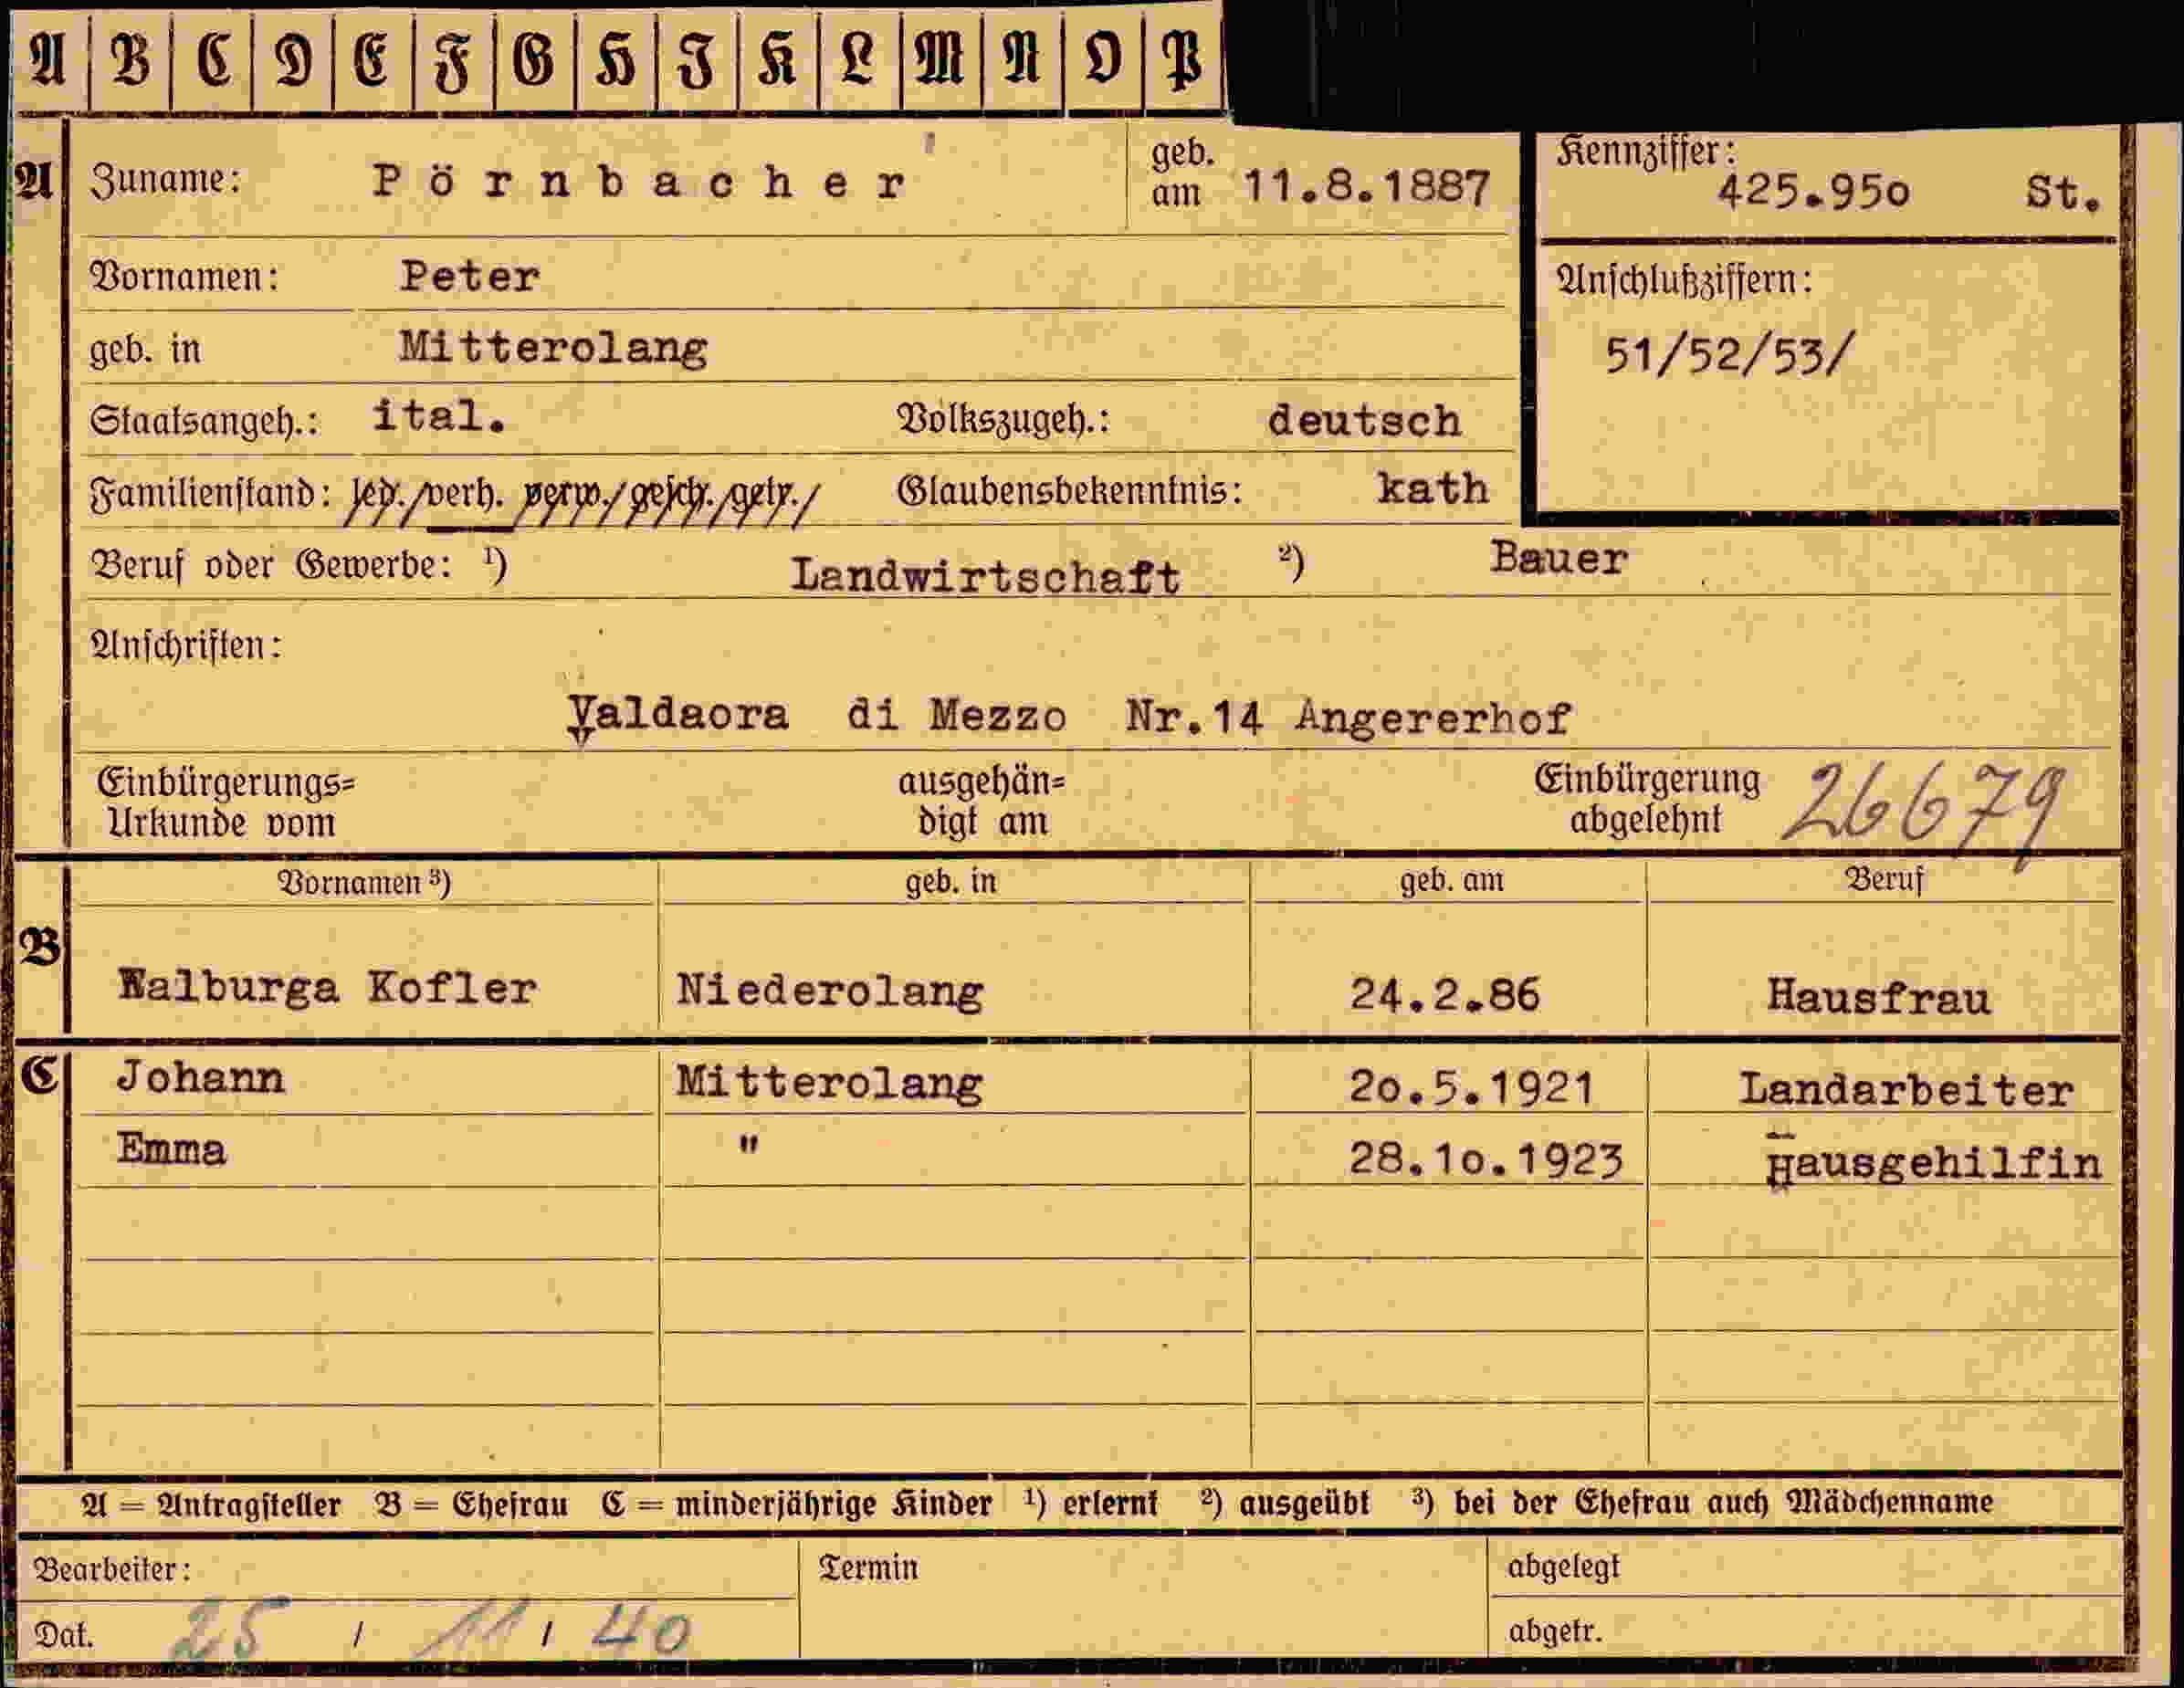 A B C D E F G H I K L M N O P
A Zuname: Pörnbacher geb. am 11.8.1887 Kennziffer: 425.95o St.
Vornamen: Peter Anschlußziffern:
geb. in Mitterolang 51/52/53/
Staatsangeh.: ital. Volkszugeh.: deutsch
Familienstand: led./verh. verw./gesch./getr./ Glaubensbekenntnis: kath
Beruf oder Gewerbe: ¹) Landwirtschaft ²) Bauer
Anschriften:
Valdaora di Mezzo Nr.14 Angererhof
Einbürgerungs= ausgehän= Einbürgerung 26679
Urkunde vom digt am abgelehnt
Vornamen ³) geb. in geb. am Beruf
B Walburga Kofler Niederolang 24.2.86 Hausfrau
C Johann Mitterolang 2o.5.1921 Landarbeiter
Emma " 28.1o.1923 Hausgehilfin
A = Antragsteller B = Ehefrau C = minderjährige Kinder ¹) erlernt ²) ausgeübt ³) bei der Ehefrau auch Mädchenname
Bearbeiter: Termin abgelegt
Dat. 25 / 11 / 40 abgetr.